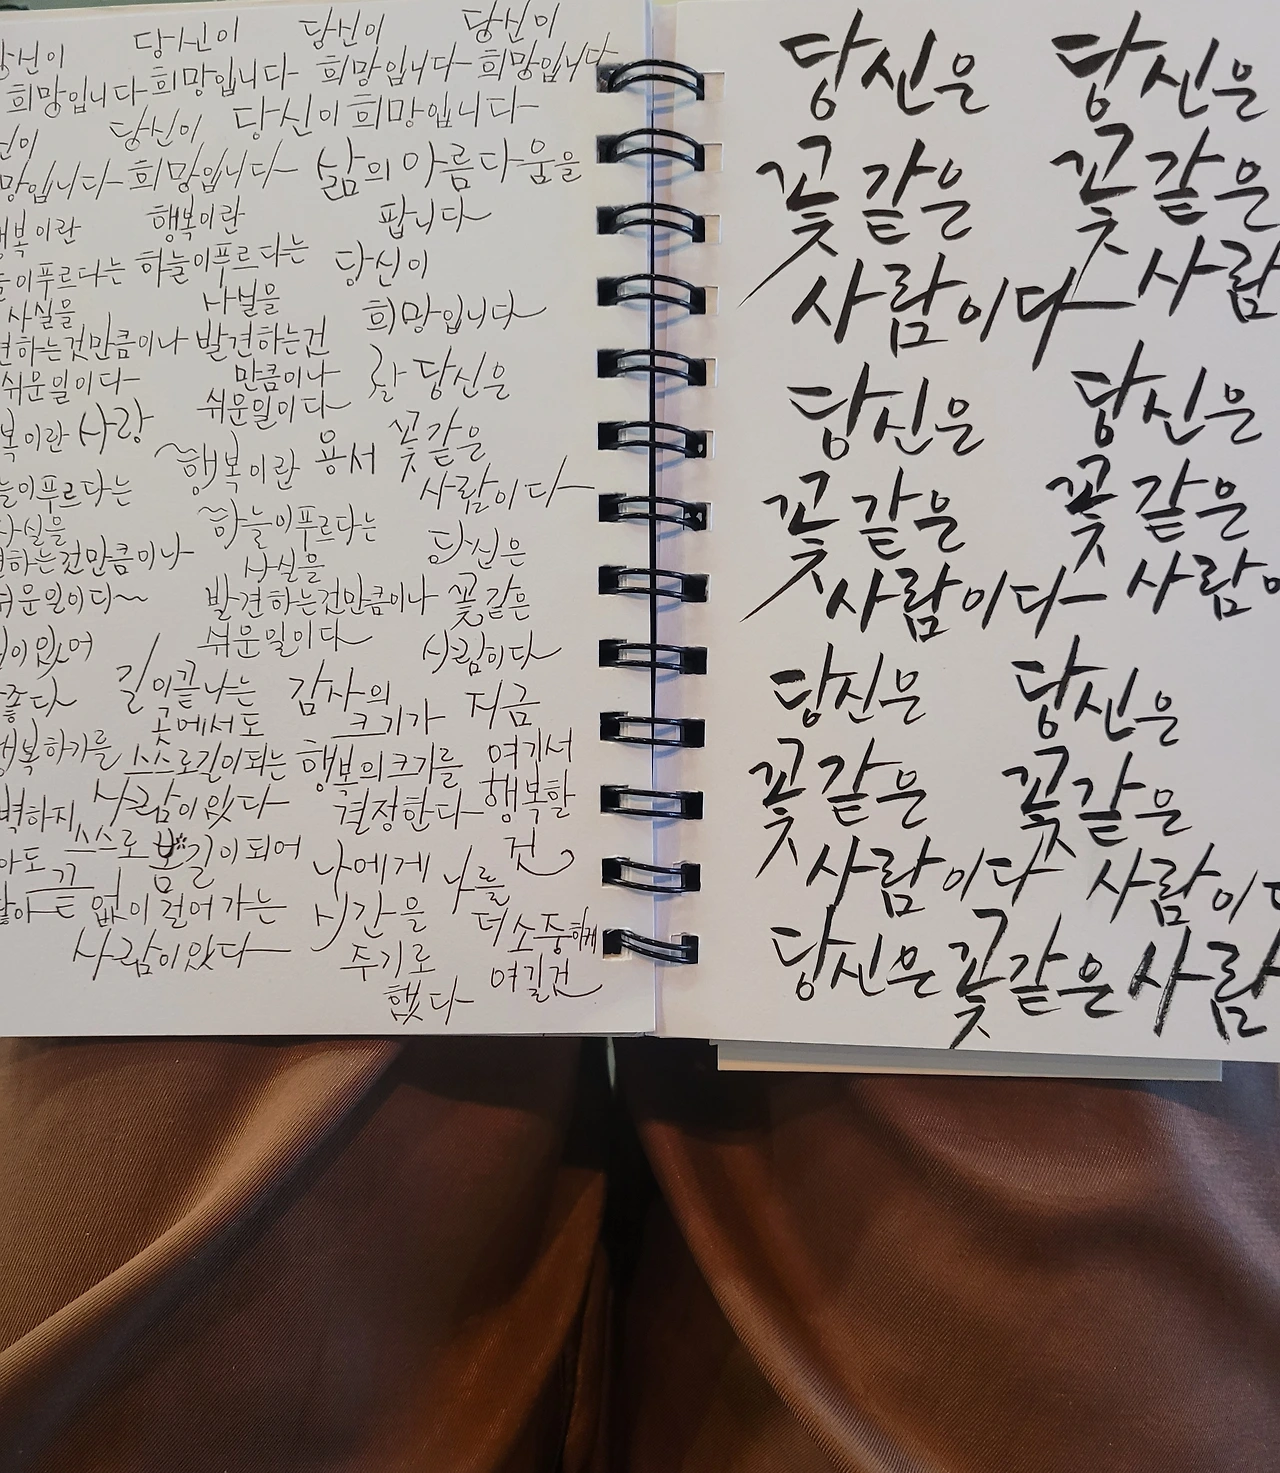 당신이 당신이 당신이 당신이
희망입니다 희망입니다 희망입니다 희망입니다
당신이 당신이 희망입니다
희망입니다 삶의 아름다움을
팝니다
행복이란 행복이란
하늘이푸르다는 당신이
사실을 사실을
희망입니다
하는것만큼이나 발견하는건
만큼이나
쉬운일이다 쉬운일이다
참 당신은
꽃같은
사람이다
행복이란 사랑
행복이란 용서
늘이푸르다는 하늘이푸르다는
사실을 사실을
하는것만큼이나 발견하는것만큼이나
쉬운일이다 쉬운일이다
당신은
꽃같은
사람이다
이있어
좋다
행복하기를
길이끝나는
곳에서도
스스로길이되는
사람이있다
스스로 봄길이되어
끝없이걸어가는
사람이있다
감사의
크기가
행복의크기를
결정한다
지금
여기서
행복할
것
나에게
시간을
주기로
했다
나를
더소중하게
여길것
당신은
꽃같은
사람이다
당신은
꽃같은
사람
당신은
꽃같은
사람이다
당신은
꽃같은
사람
당신은
꽃같은
사람이다
당신은
꽃같은
사람이
당신은꽃같은사람